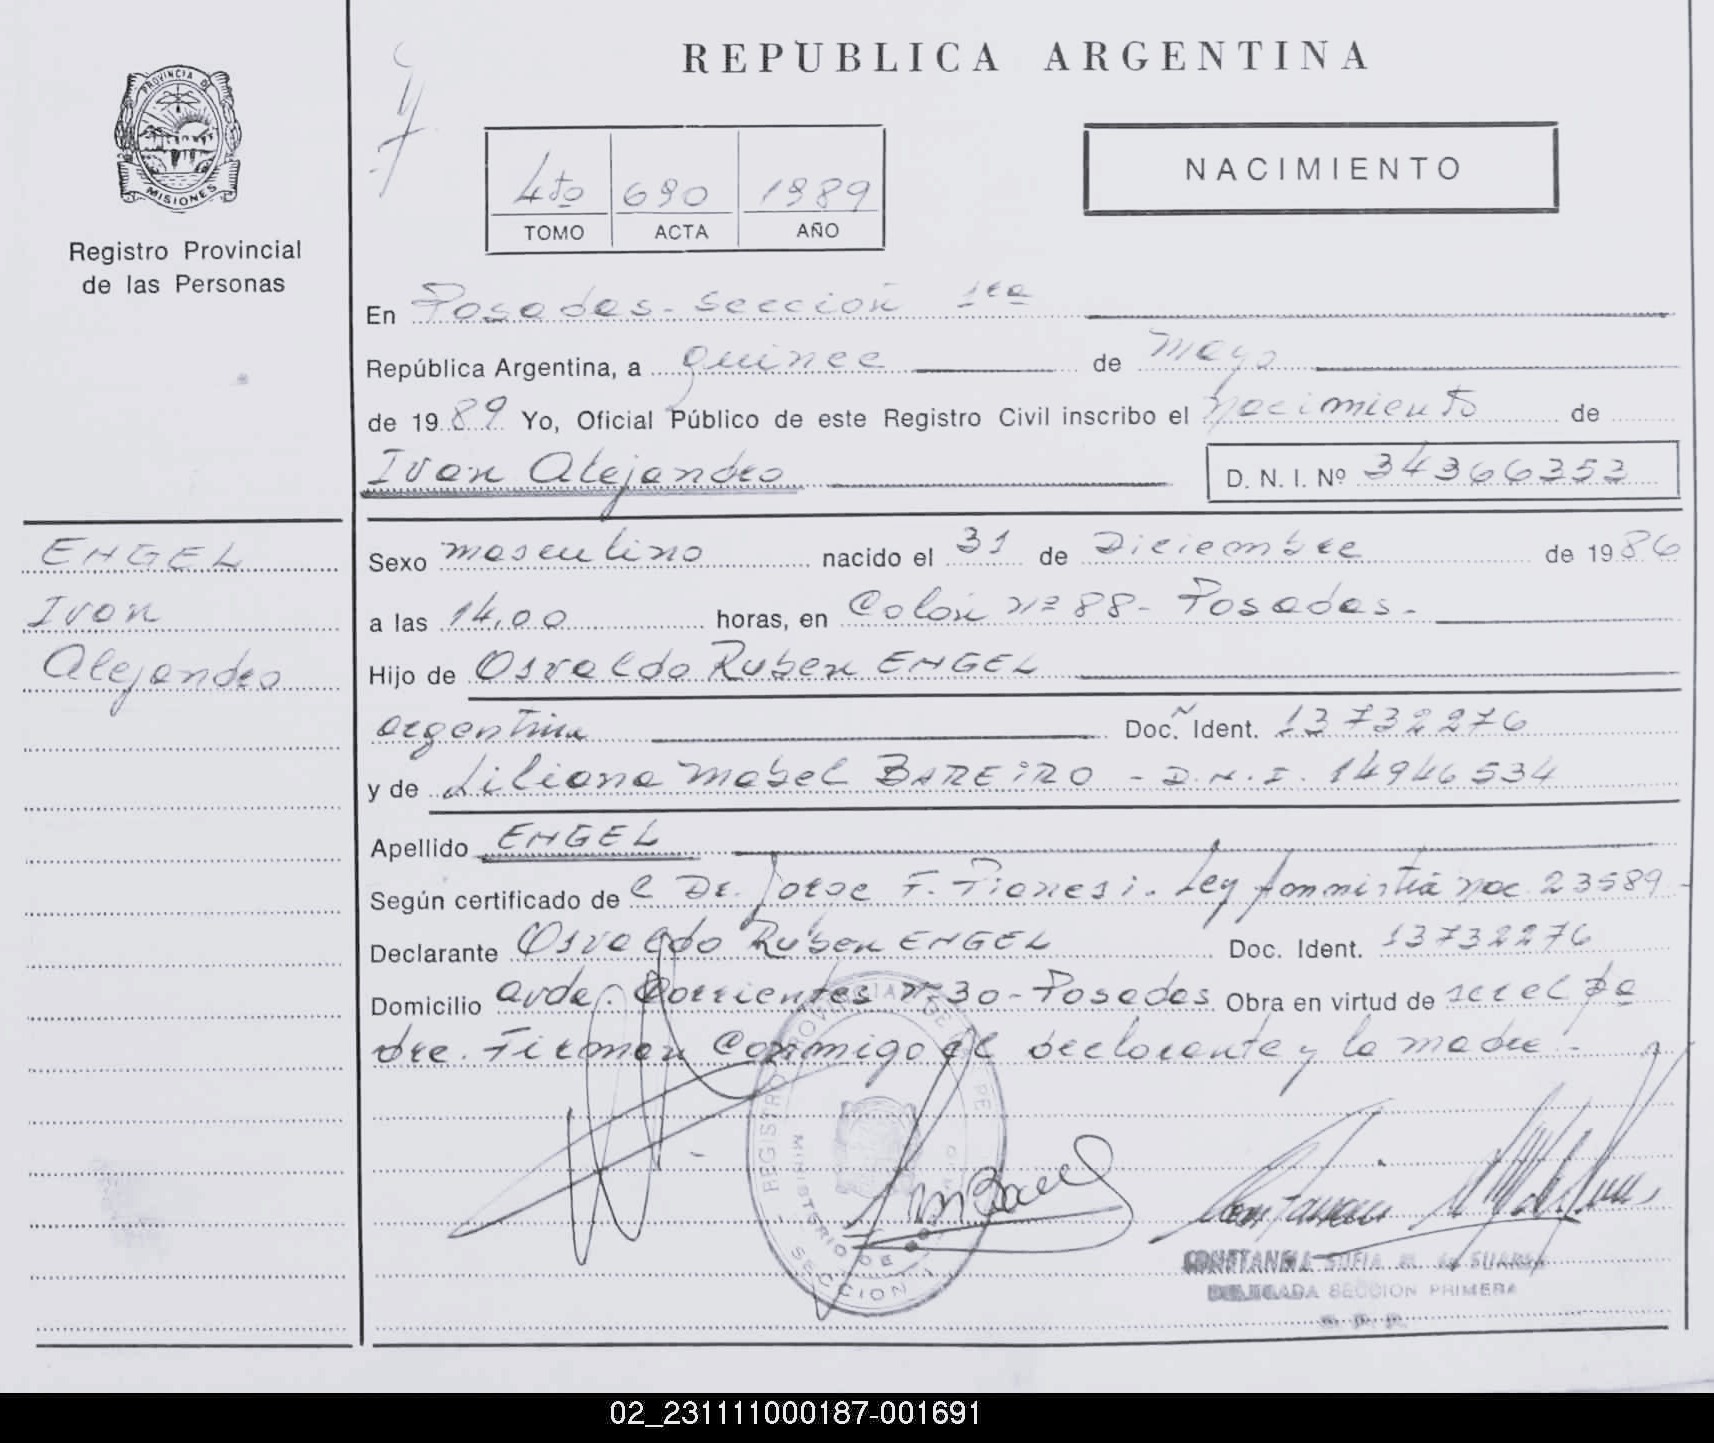 REPUBLICA ARGENTINA
PROVINCIA DE
MISIONES
Registro Provincial
de las Personas
NACIMIENTO
4to 690 1989
TOMO ACTA AÑO
En Posadas - Sección 1ra
República Argentina, a quince de mayo
de 1989 Yo, Oficial Público de este Registro Civil inscribo el nacimiento de
Ivan Alejandro D. N. I. Nº 34366353
ENGEL
Ivan
Alejandro
Sexo masculino nacido el 31 de Diciembre de 1986
a las 14,00 horas, en Colón nº 88 - Posadas -
Hijo de Osvaldo Ruben ENGEL
argentina Doc. Ident. 13732276
y de Liliana Mabel BAREIRO - D.N.I. 14946534
Apellido ENGEL
Según certificado de l Dr. Jorge F. Ley 23589 -
Declarante Osvaldo Ruben ENGEL Doc. Ident. 13732276
Domicilio avda. Corrientes nº 30 - Posadas Obra en virtud de ser el pa
dre. Firman conmigo el declarante y la madre -
REGISTRO PROVINCIAL DE
MINISTERIO DE
SECCION
CONSTANCIA SOFIA M. de SUAREZ
DELEGADA SECCION PRIMERA
02_231111000187-001691